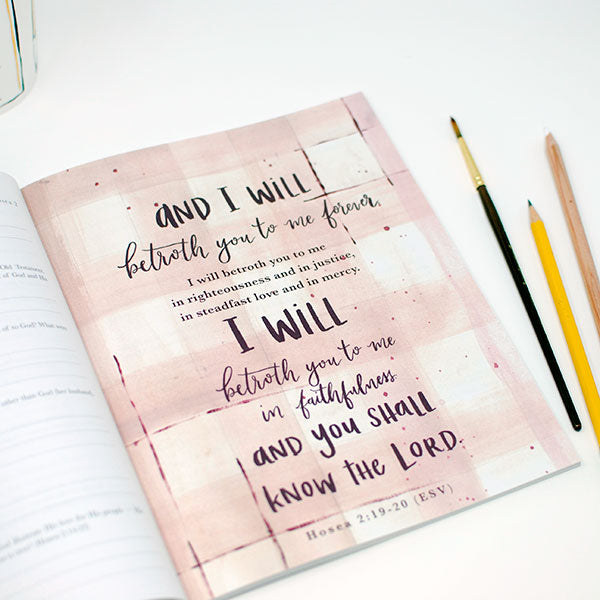 osea 2
Old Testament,
of God and His
of to God? What were
other than God (her husband,
AND I WILL
betroth you to me forever.
I will betroth you to me
in righteousness and in justice,
in steadfast love and in mercy.
I WILL
betroth you to me
in faithfulness
AND YOU SHALL
KNOW THE LORD.
Hosea 2:19-20 (ESV)